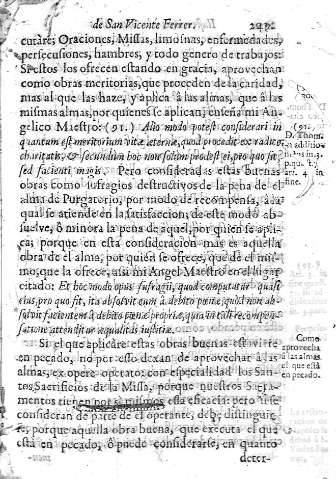 de San Vicente Ferrer.
cutare; Oraciones, Missas, limosnas, enfermedades,
persecusiones, hambres, y todo genero de trabajos.
Si estos los ofrecen estando en gracia, aprovechan
como obras meritorias, que proceden de la caridad,
mas al que las haze, y aplica à las almas, que à las
mismas almas, por quienes se aplican; enseña mi An-
gelico Maestro: (91.) Alio modo potest considerari in
quantum est meritorium vitæ æternæ, quod procedit ex radice
charitatis, & secundum hoc non solum prodest ei, pro quo fit,
sed facienti magis. Pero consideradas estas buenas
obras como sufragios destructivos de la pena de el
alma de Purgatorio, por modo de recompensa, à la
qual se atiende en la satisfaccion, de este modo ab-
suelve, ò minora la pena de aquel, por quien se apli-
ca; porque en esta consideracion mas es aquella
obra de el alma, por quien se ofrece, que de el mis-
mo, que la ofrece, assi mi Angel Maestro en el lugar
citado: Et hoc modo opus suffragij, quod computatur quasi
eius, pro quo fit, ita absolvit eum à debito pœnæ, quod non ab-
solvit facientem à debito pœnæ propriæ, quia in tali recompen-
satione attenditur æqualitas iustitiæ.
Si el que aplicàre estas obras buenas estuviere
en pecado, no por esso dexan de aprovechar à las
almas, ex opere operato: con especialidad los San-
tos Sacrificios de la Missa, porque nuestros Sacra-
mentos tienen por si mismos esta eficacia: pero si se
consideran de parte de el operante, debe distinguir-
se, porque aquella obra buena, que executa el que
està en pecado, ò puede considerarse, en quanto
deter-
(91.
D. Thom.
in additio-
nibus in 3.
p. qu. 71.
art. 4. in
fine.
Como
aprovecha
à las almas
el que
està en
pecado.